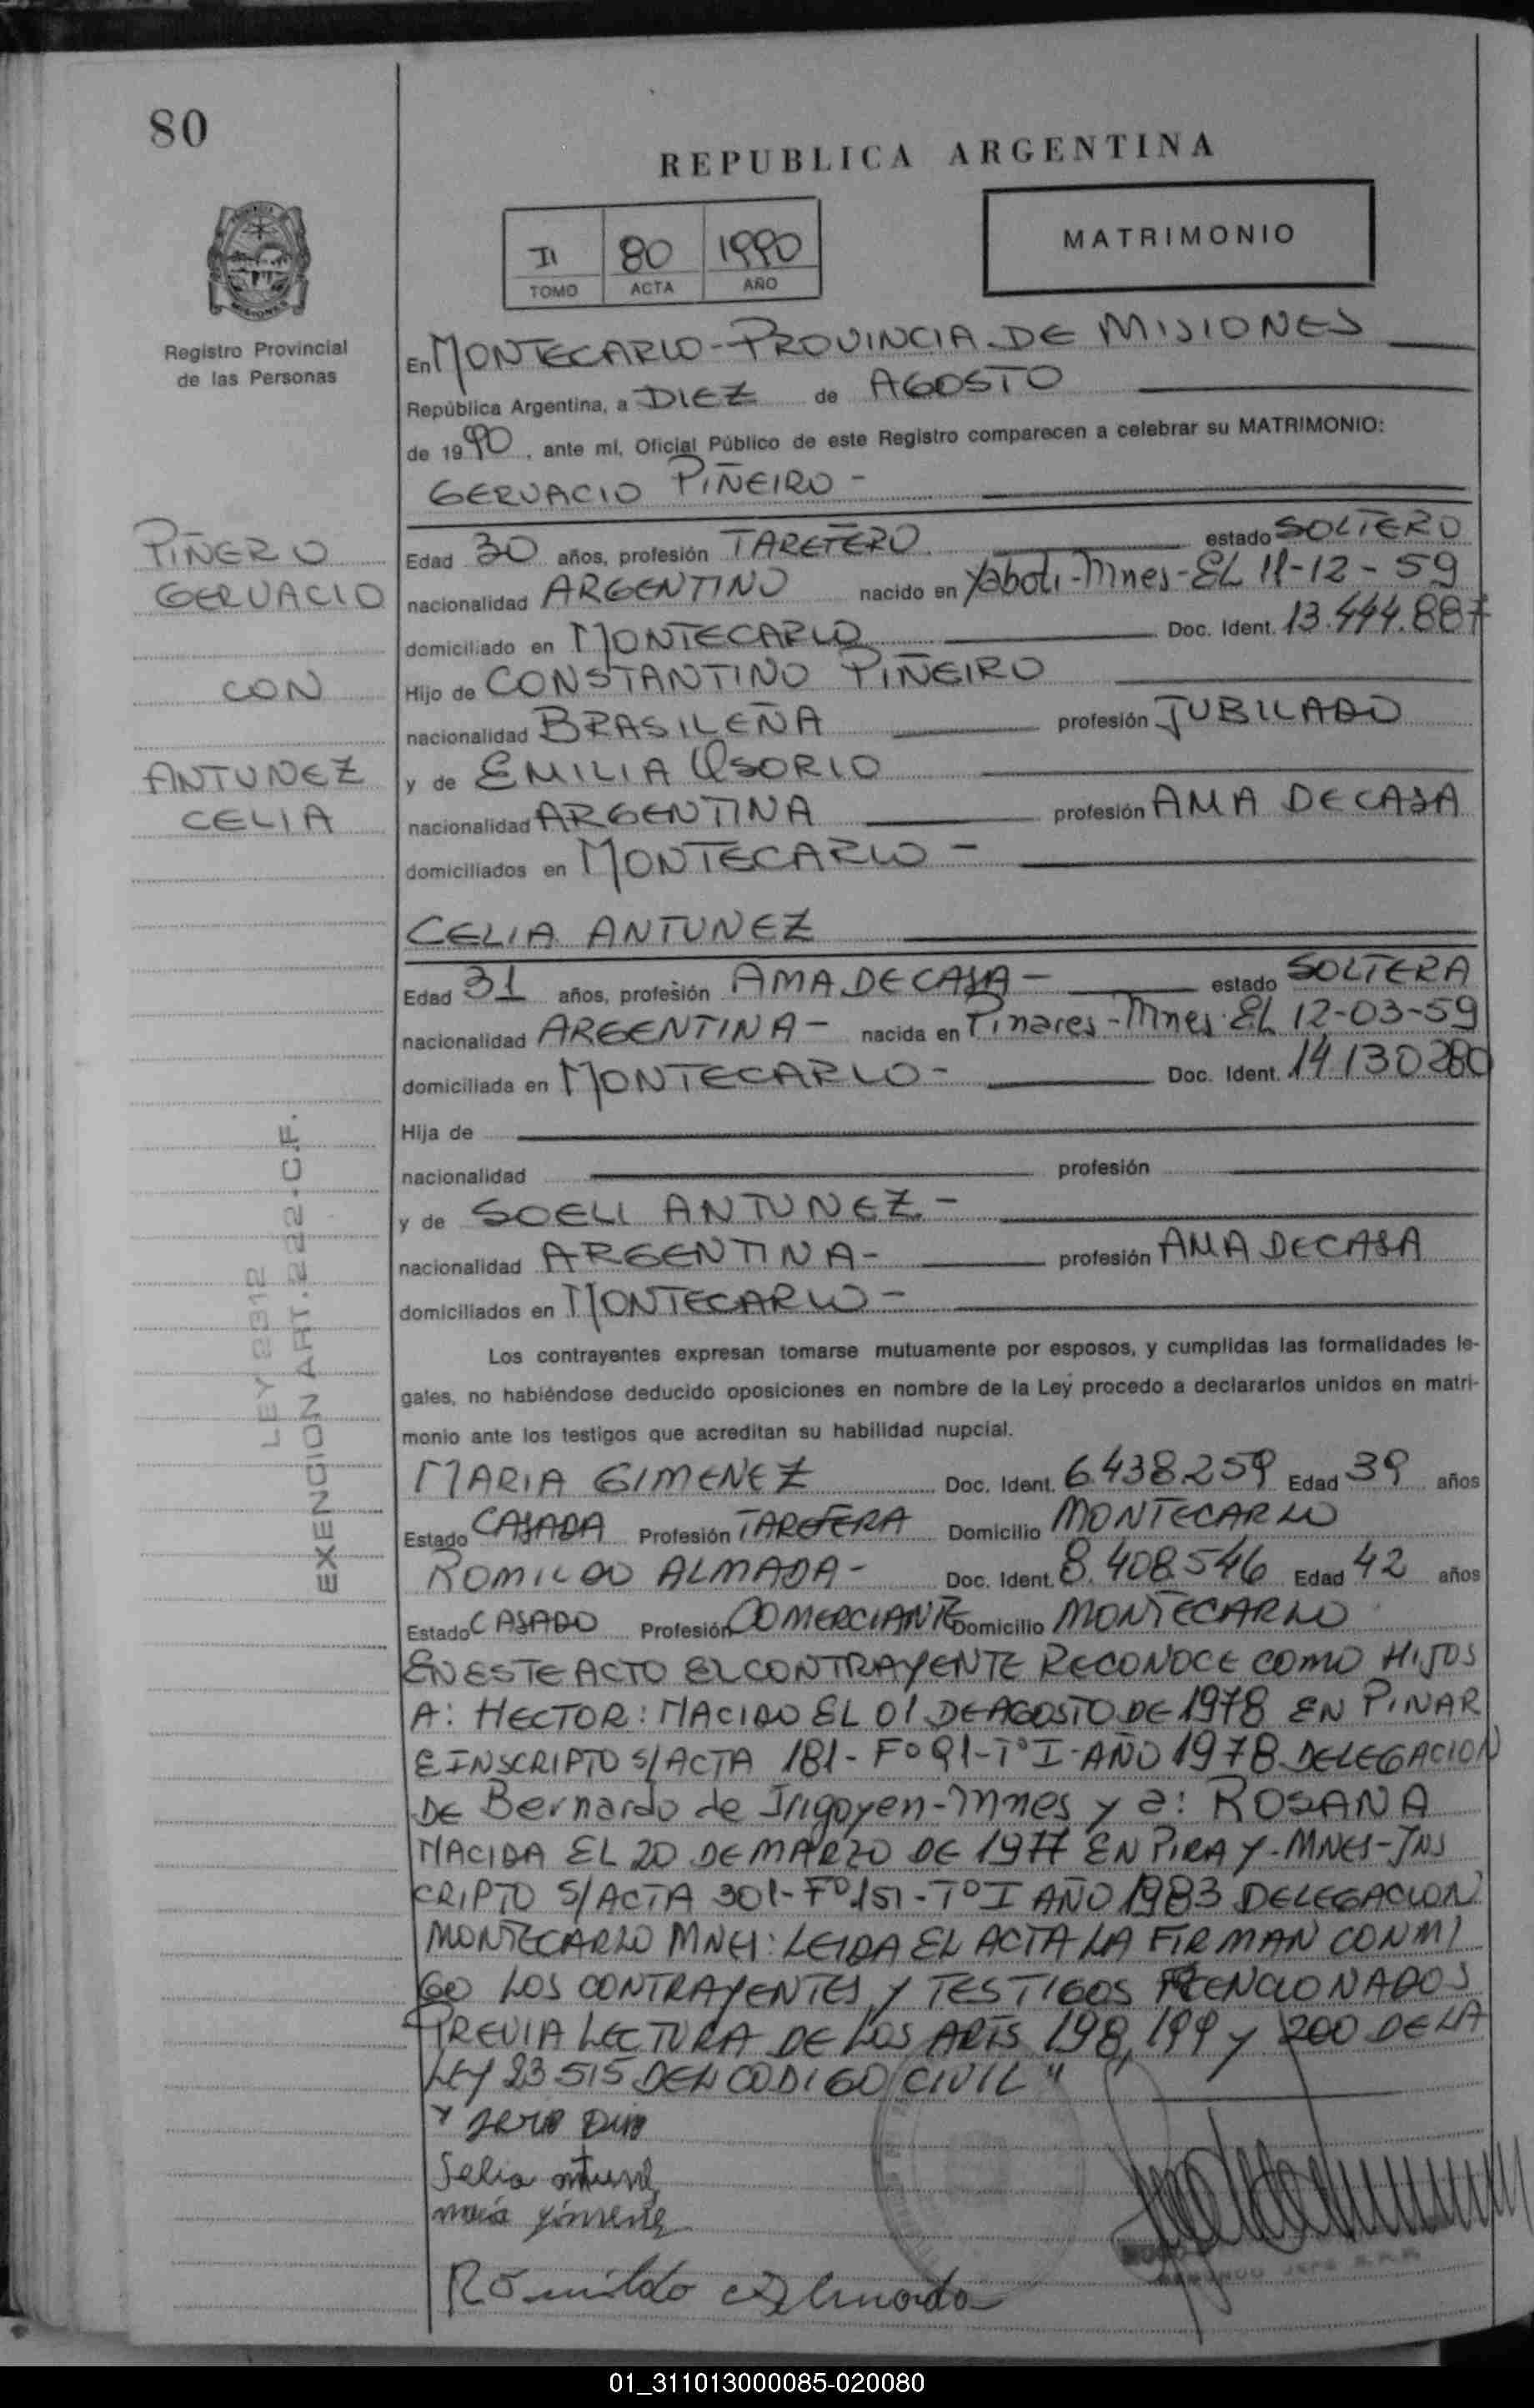 80
REPUBLICA ARGENTINA
II 80 1990
TOMO ACTA AÑO
MATRIMONIO
Registro Provincial
de las Personas
En MONTECARLO - PROVINCIA DE MISIONES
República Argentina, a DIEZ de AGOSTO
de 1990, ante mí, Oficial Público de este Registro comparecen a celebrar su MATRIMONIO:
GERVACIO PIÑEIRO -
PIÑERO
GERVACIO
CON
ANTUNEZ
CELIA
Edad 30 años, profesión TAREFERO estado SOLTERO
nacionalidad ARGENTINO nacido en Yaboti - Mnes - EL 11-12-59
domiciliado en MONTECARLO Doc. Ident. 13.444.887
Hijo de CONSTANTINO PIÑEIRO
nacionalidad BRASILEÑA profesión JUBILADO
y de EMILIA OSORIO
nacionalidad ARGENTINA profesión AMA DE CASA
domiciliados en MONTECARLO -
CELIA ANTUNEZ
Edad 31 años, profesión AMA DE CASA - estado SOLTERA
nacionalidad ARGENTINA - nacida en Pinares - Mnes. EL 12-03-59
domiciliada en MONTECARLO - Doc. Ident. 14.130280
Hija de
nacionalidad profesión
y de SOELI ANTUNEZ -
nacionalidad ARGENTINA - profesión AMA DE CASA
domiciliados en MONTECARLO -
LEY 2312
EXENCION ART. 222.C.F.
Los contrayentes expresan tomarse mutuamente por esposos, y cumplidas las formalidades le-
gales, no habiéndose deducido oposiciones en nombre de la Ley procedo a declararlos unidos en matri-
monio ante los testigos que acreditan su habilidad nupcial.
MARIA GIMENEZ Doc. Ident. 6.438.259 Edad 39 años
Estado CASADA Profesión TAREFERA Domicilio MONTECARLO
ROMILDO ALMADA - Doc. Ident. 8.408.546 Edad 42 años
Estado CASADO Profesión COMERCIANTE Domicilio MONTECARLO
EN ESTE ACTO EL CONTRAYENTE RECONOCE COMO HIJOS
A: HECTOR: NACIDO EL 01 DE AGOSTO DE 1978 EN PINAR
E INSCRIPTO S/ACTA 181 - Fº 91 - Tº I - AÑO 1978 DELEGACION
DE Bernardo de Irigoyen - Mnes y a: ROSANA
NACIDA EL 20 DE MARZO DE 1977 EN PIRAY - MNES - INS
CRIPTO S/ACTA 301 - Fº 151 - Tº I AÑO 1983 DELEGACION
MONTECARLO MNES: LEIDA EL ACTA LA FIRMAN CONMI
GO LOS CONTRAYENTES, Y TESTIGOS MENCIONADOS
PREVIA LECTURA DE LOS ARTS 198, 199 y 200 DE LA
LEY 23.515 DEL CODIGO CIVIL"
Selia
maria ximenez
Romildo Almada
01_311013000085-020080